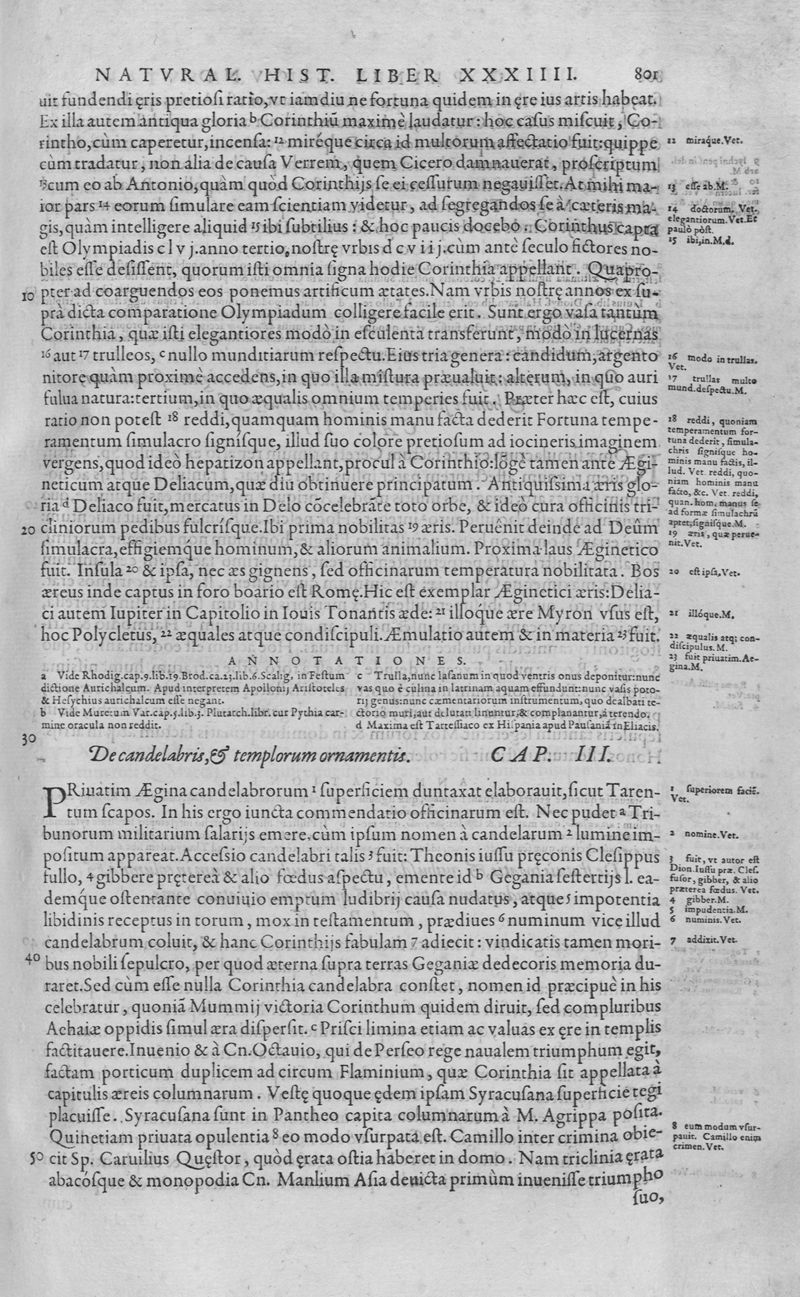 NATVRAL. HIST. LIBER XXXIIII. 801
uit fundendi ęris pretiosi ratio, vt iamdiu ne fortuna quidem in ęre ius artis habeat.
Ex illa autem antiqua gloria ᵇ Corinthiū maximè laudatur: hoc casus miscuit, Co-
rintho, cùm caperetur, incensa: ¹² miréque circa id multorum affectatio fuit: quippe
cùm tradatur, non alia de causa Verrem, quem Cicero damnauerat, proscriptum
¹³cum eo ab Antonio, quàm quòd Corinthijs se ei cessurum negauisset. At mihi ma-
ior pars ¹⁴ eorum simulare eam scientiam videtur, ad segregandos se à cæteris ma-
gis, quàm intelligere aliquid ¹⁵ ibi subtilius: & hoc paucis docebo. Corinthus capta
est Olympiadis c l v j. anno tertio, nostrę vrbis d c v i i j. cùm antè seculo fictores no-
biles esse desissent, quorum isti omnia signa hodie Corinthia appellant. Quapro-
10 pter ad coarguendos eos ponemus artificum ætates. Nam vrbis nostrę annos ex su-
prà dicta comparatione Olympiadum colligere facile erit. Sunt ergo vasa tantùm
Corinthia, quæ isti elegantiores modò in esculenta transferunt, modò in lucernas
¹⁶ aut ¹⁷ trulleos, ᶜ nullo munditiarum respectu. Eius tria genera: candidum, argento
nitore quàm proximè accedens, in quo illa mistura præualuit: alterum, in quo auri
fulua natura: tertium, in quo æqualis omnium temperies fuit. Præter hæc est, cuius
ratio non potest ¹⁸ reddi, quamquam hominis manu facta dederit Fortuna tempe-
ramentum simulacro signisque, illud suo colore pretiosum ad iocineris imaginem
vergens, quod ideò hepatizon appellant, procul à Corinthio: lōgè tamen ante Ægi-
neticum atque Deliacum, quæ diu obtinuere principatum. Antiquissima æris glo-
ria ᵈ Deliaco fuit, mercatus in Delo cōcelebrāte toto orbe, & ideo cura officinis tri-
20 cliniorum pedibus fulcrísque. Ibi prima nobilitas ¹⁹ æris. Peruênit deinde ad Deûm
simulacra, effigiemque hominum, & aliorum animalium. Proxima laus Æginetico
fuit. Insula ²⁰ & ipsa, nec æs gignens, sed officinarum temperatura nobilitata. Bos
æreus inde captus in foro boario est Romę. Hic est exemplar Æginetici æris: Delia-
ci autem Iupiter in Capitolio in Iouis Tonantis æde: ²¹ illoque ære Myron vsus est,
hoc Polycletus, ²² æquales atque condiscipuli. Æmulatio autem & in materia ²³ fuit.
12 miraque. Vet.
13 esse ab M.
14 doctorum. Vet. elegantiorum. Vet. Et
paulò pòst.
15 ibi, in. M. d.
16 modo in trullas.
Vet.
17 trullas multo
mund. despectu. M.
18 reddi, quoniam
temperamentum for-
tuna dederit, simula-
chris signisque ho-
minis manu factis, il-
lud. Vet. reddi, quo-
niam hominis manu
facto, &c. Vet. reddi,
quan. hom. manus se
ad formæ simulachrū
aptet, signisque. M.
19 æris, quæ perue-
nit. Vet.
20 est ipsa. Vet.
21 illóque. M.
22 æqualis atq; con-
discipulus. M.
23 fuit priuatim. Ae-
gina. M.
ANNOTATIONES.
a Vide Rhodig. cap. 9. lib. 19. Brod. ca. 23. lib. 6. Scalig. in Festum
dictione Aurichalcum. Apud interpretem Apollonij Aristoteles
& Hesychius aurichalcum esse negant.
b Vide Muretum Var. cap. 5. lib. 3. Plutarch. libr. cur Pythia car-
mine oracula non reddit.
c Trulla, nunc lasanum in quod ventris onus deponitur: nunc
vas quo è culina in latrinam aquam effundunt: nunc vasis poto-
rij genus: nunc cæmentariorum instrumentum, quo dealbati te-
ctorio muri, aut delutati linuntur, & complanantur, à terendo.
d Maxima est Tartessiaco ex Hispania apud Pausaniā in Eliacis.
30
De candelabris, & templorum ornamentis. CAP. III.
PRiuatim Ægina candelabrorum ¹ superficiem duntaxat elaborauit, sicut Taren-
tum scapos. In his ergo iuncta commendatio officinarum est. Nec pudet ᵃ Tri-
bunorum militarium salarijs emere. cùm ipsum nomen à candelarum ² lumine im-
positum appareat. Accessio candelabri talis ³ fuit: Theonis iussu pręconis Clesippus
fullo, ⁴ gibbere pręterea & alio fœdus aspectu, emente id ᵇ Gegania sestertijs l. ea-
demque ostentante conuiuio emptum ludibrij causa nudatus, atque ⁵ impotentia
libidinis receptus in torum, mox in testamentum, prædiues ⁶ numinum vice illud
candelabrum coluit, & hanc Corinthijs fabulam ⁷ adiecit: vindicatis tamen mori-
40 bus nobili sepulcro, per quod æterna supra terras Geganiæ dedecoris memoria du-
raret. Sed cùm esse nulla Corinthia candelabra constet, nomen id præcipuè in his
celebratur, quoniā Mummij victoria Corinthum quidem diruit, sed compluribus
Achaiæ oppidis simul æra dispersit. ᶜ Prisci limina etiam ac valuas ex ęre in templis
factitauere. Inuenio & à Cn. Octauio, qui de Perseo rege naualem triumphum egit,
factam porticum duplicem ad circum Flaminium, quæ Corinthia sit appellata à
capitulis æreis columnarum. Vestę quoque ędem ipsam Syracusana superficie tegi
placuisse. Syracusana sunt in Pantheo capita columnarum à M. Agrippa posita.
Quinetiam priuata opulentia ⁸ eo modo vsurpata est. Camillo inter crimina obie-
50 cit Sp. Caruilius Quęstor, quòd ęrata ostia haberet in domo. Nam triclinia ęrata
abacósque & monopodia Cn. Manlium Asia deuicta primùm inuenisse triumpho
suo,
1 superiorem faciē.
Vet.
2 nomine. Vet.
3 fuit, vt autor est
Dion. Iussu præ. Cles.
fusor, gibber, & alio
præterea fœdus. Vet.
4 gibber. M.
5 impudentia. M.
6 numinis. Vet.
7 addixit. Vet.
8 eum modum vsur-
pauit. Camillo enim
crimen. Vet.